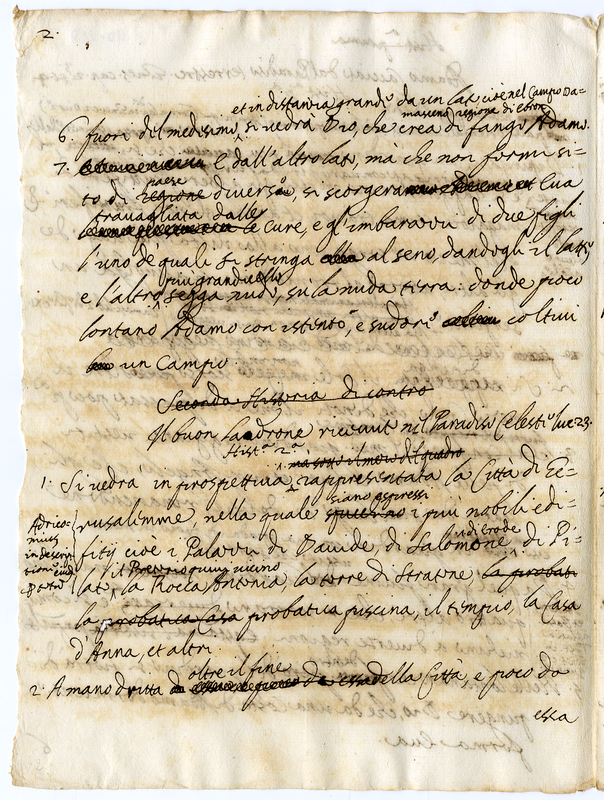 2.
et in distanza grande da un lato cioè nel Campo Da-
masceno regione di ebron
6. fuori del medesimo, si vedrà Dio, che crea di fango Adamo.
7. E dall'altro lato, mà che non formi si-
paese
to di regione diverso, si scorgerà Eua
trauagliata dalle
le cure, e gl'imbarazzi di due figli
l'uno de quali si stringa al seno, dandogli il latte,
più grandicello
e l'altro segga nudo, sù la nuda terra: donde poco
lontano Adamo con istento, e sudore coltiui
un Campo.
Seconda Historia di contro
Il buon Ladrone riceuuto nel Paradiso Celeste luc. 23.
Hist.a 2.a
ma sotto il meno del quadro
1. Si vedrà in prospettiua rappresentata la Città di Ge-
siano espressi
rusalemme, nella quale i più nobili edi-
Adrico-
mius
in descri-
di Erode
fitij cioè i Palazzi di Dauide, di Salomone, di Pi-
il Pretorio quiui vicino
lato, la Rocca Antonia, la torre di Stratone, la probati
la probatica Casa probatica piscina, il tempio, la Casa
d'Anna, et altri
oltre il fine
2. A mano dritta da essa della Città, e poco da
essa